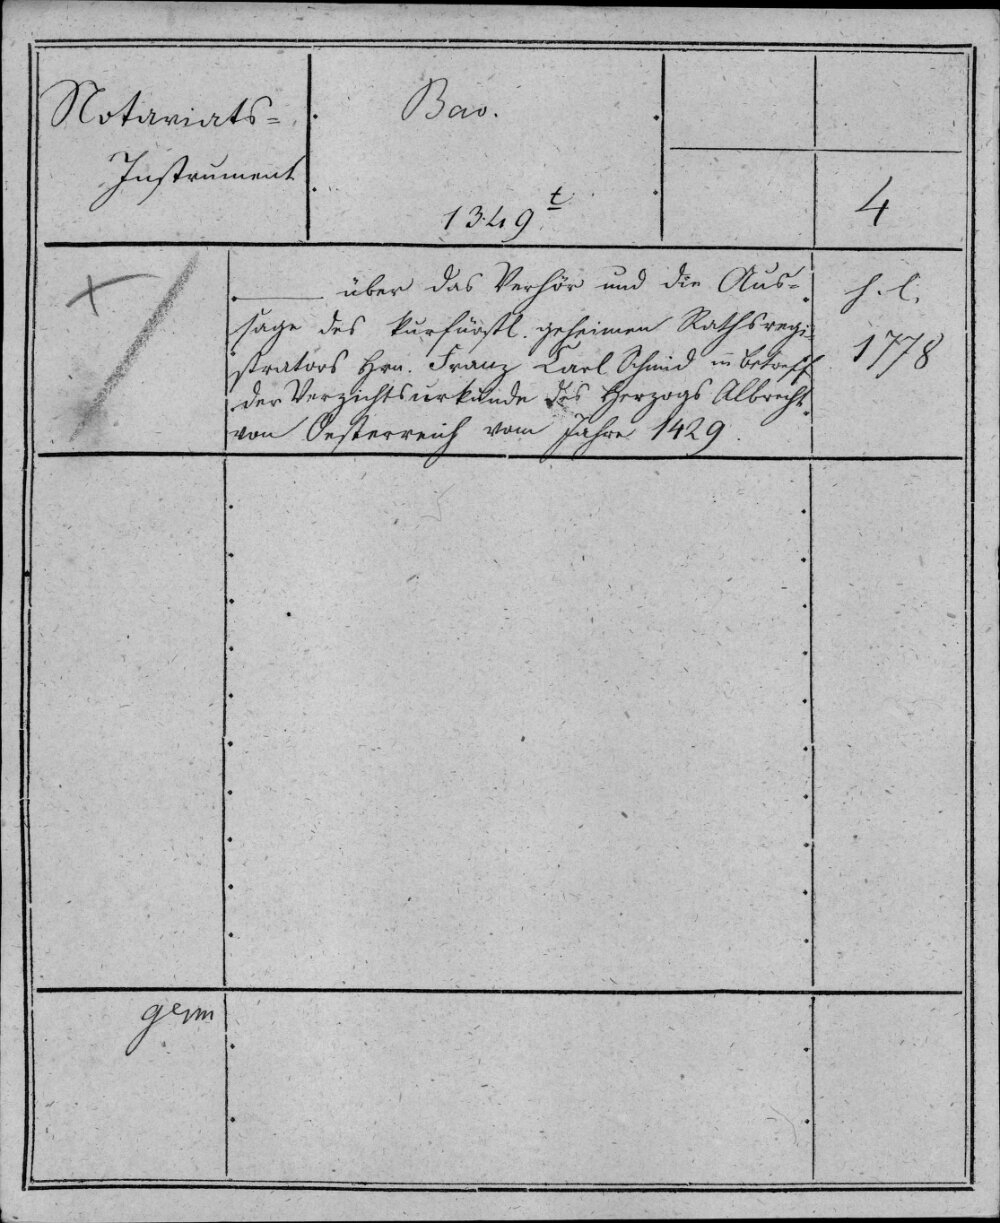 Notariats-
Instrument
Bav.
1349 t
4
über das Verhör und die Aus-
sage des kurfürstl. geheimen Rathsregi-
strators Hrn. Franz Carl Schmid in betreff
der Verzichtsurkunde des Herzogs Albrecht
von Oesterreich vom Jahre 1429.
s. l.
1778
germ